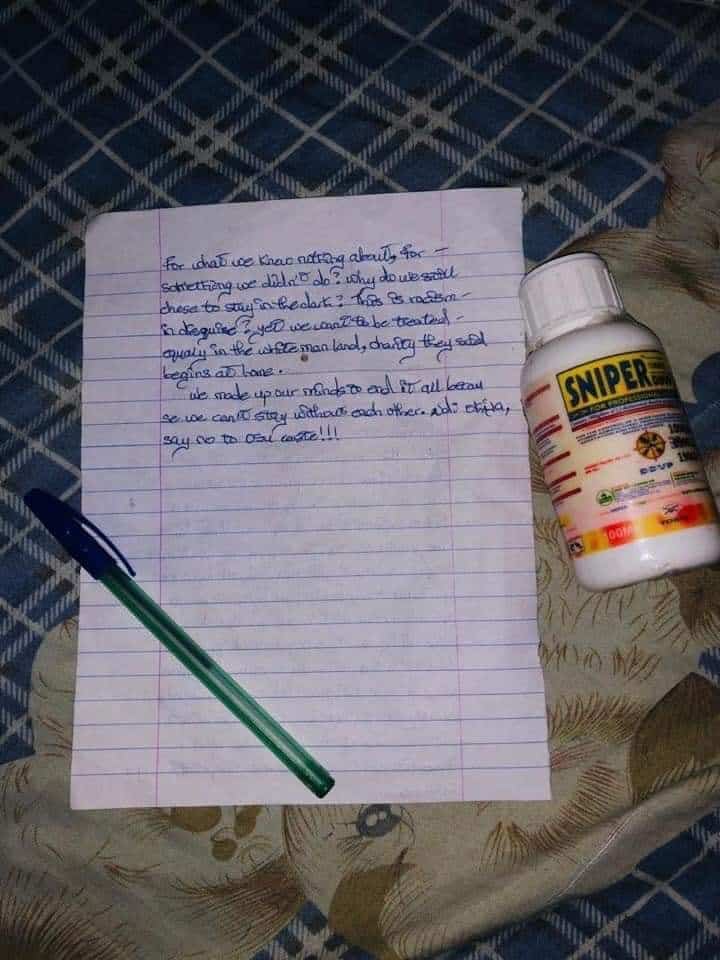 For what we know nothing about, for -
something we didn't do? why do we still
chose to stay in the dark? This is racism -
in disguise? yet we want to be treated -
equaly in the white man land, charity they said
begins at home.
we made up our minds to end it all becau
se we can't stay without each other.
say no to osu caste!!!
SNIPER
FOR PROFESSIONAL
DDVP
100M